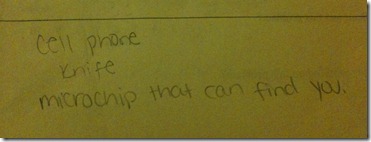 cell phone
knife
microchip that can find you.